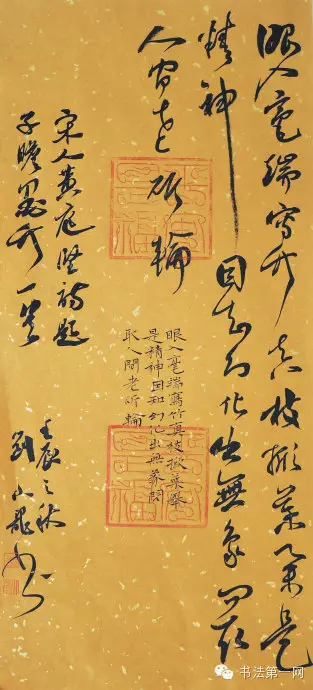 眼入毫端寫竹真枝掀葉舉是
精神
因知幻化出無象問取
人間老斫輪
眼入毫端寫竹真枝掀葉舉
是精神因知幻化出無象問
取人間老斫輪
宋人黃庭堅詩題
子瞻墨竹一首
壬辰之秋
劉 龍書
书法第一网